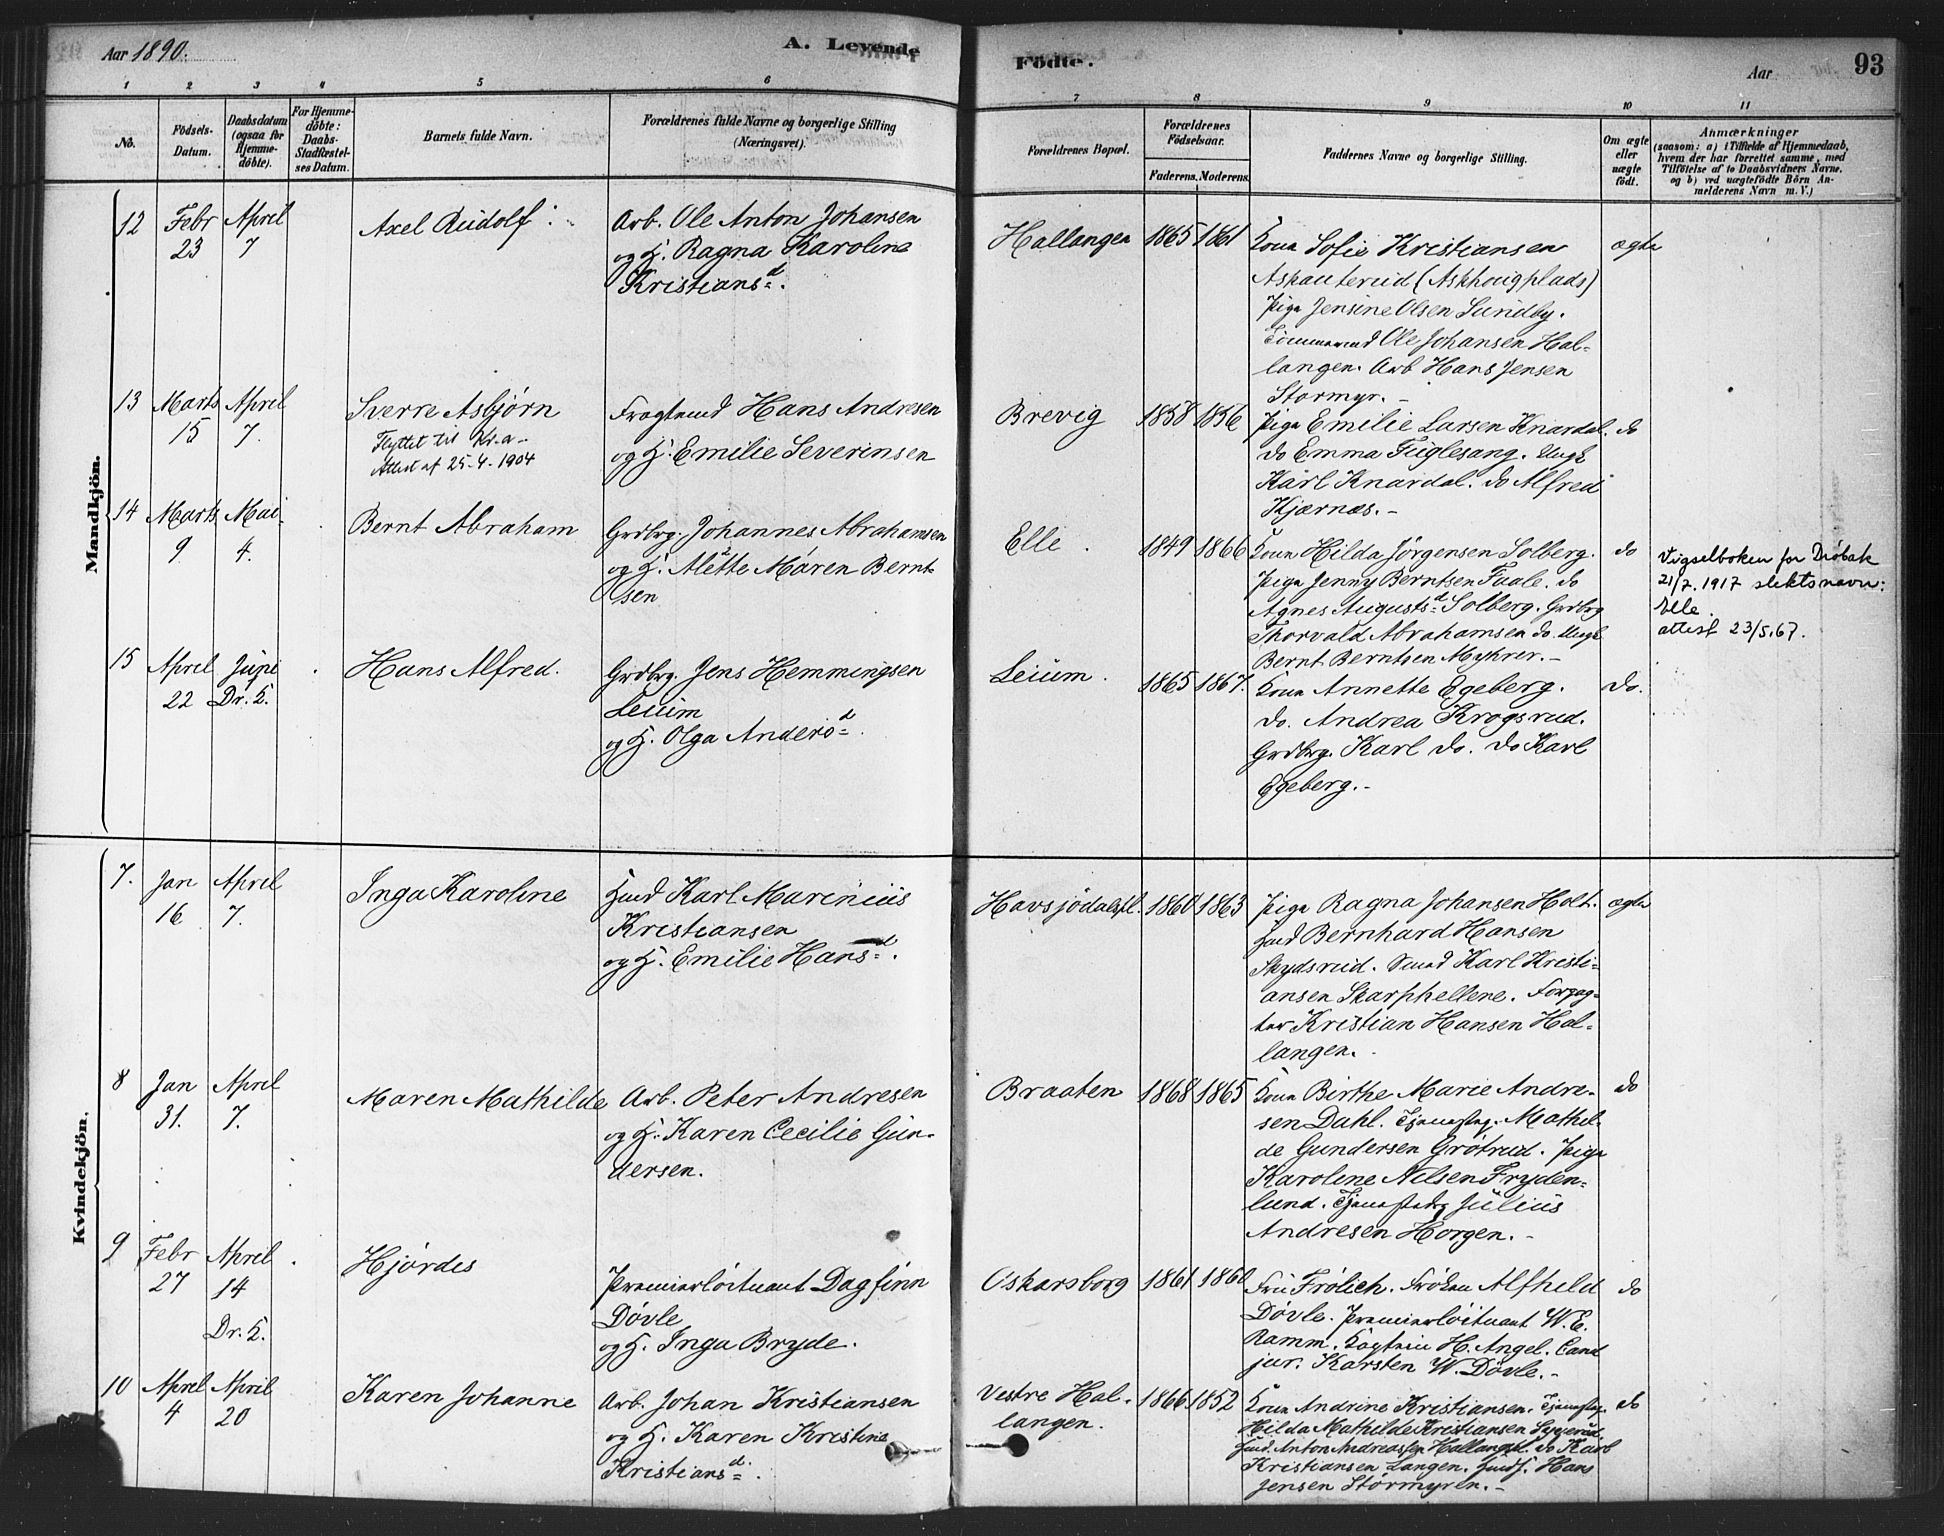 Aar 1890. A. Levende Födte. Aar 93
1 2 3 4 5 6 7 8 9 10 11
No.
Födsels-
Datum.
Daabsdatum
(ogsaa for
Hjemme-
döbte).
For Hjemme-
döbte:
Daabs-
Stadfæstel-
ses Datum.
Barnets fulde Navn.
Forældrenes fulde Navne og borgerlige Stilling
(Næringsvei).
Forældrenes Bopæl.
Forældrenes
Födselsaar.
Faderens. Moderens.
Faddernes Navne og borgerlige Stilling.
Om ægte
eller
uægte
födt.
Anmærkninger
(saasom: a) i Tilfælde af Hjemmedaab,
hvem der har forrettet samme, med
Tilföielse af to Daabsvidners Navne.
og b) ved uægtefödte Börn An-
melderens Navn m. V.)
Mandkjön.
12 Febr 23 April 7
Axel Rudolf
Arb. Ole Anton Johansen
og H. Ragna Karoline
Kristiansd.
Hallangen 1865 1861
Kona Sofie Kristiansen
Askauterud (Askhougplads)
Pige Jensine Olsen Sundby.
Tömmermd Ole Johansen Hal-
langen. Arb Hans Jensen
Stormyr.-
ægte
13 Marts 15 April 7.
Sverre Asbjørn
Flyttet til Kr.a-
Attest af 25-4-1904
Fragtemd Hans Andresen
og H. Emilie Severinsen
Brevig 1858 1856
Pige Emilie Larsen Knardal.
do Emma Fuglesang. Ungk
Karl Knardal. do Alfred
Kjærnæs.-
do
14 Marts 9 Mai 4.
Bernt Abraham
Grdbrg. Johannes Abrahamsen
og H. Alette Maren Bernt-
sen
Elle. 1849 1866
Kona Hilda Jørgensen Solberg.
Pige Jenny Berntsen Faale. do
Agnes Augustsd. Solberg. Grdbrg
Thorvald Abrahamsen do. Ungk
Bernt Berntsen Myhrer.-
do
Vigselboken for Drøbak
21/7.1917 slektsnavn:
Elle.
attest 23/5.67.
15 April 22 Juni Dr. K.
Hans Alfred.
Grdbrg. Jens Hemmingsen
Leium
og H. Olga Andersd.
Leium. 1865 1867.
Kona Annette Egeberg.
do. Andrea Krogsrud.
Grdbrg. Karl do. do Karl
Egeberg.-
do.
Kvindekjön.
7. Jan 16 April 7.
Inga Karoline
Hmd Karl Marinius
Kristiansen
og H. Emilie Hansd.
Havsjödalspl. 1860 1863
Pige Ragna Johansen Holt.
Hmd Bernhard Hansen
Skydsrud. Smed Karl Kristi-
ansen Skarphellene. Forpag-
ter Kristian Hansen Hal-
langen.
ægte
8 Jan 31. April 7.
Maren Mathilde
Arb. Peter Andresen
og H. Karen Cecilie Gun-
dersen.
Braaten 1868 1865
Kona Birthe Marie Andre-
sen Dahl. Tjenestpg. Mathil-
de Gundersen Grötrud. Pige
Karoline Nilsen Fryden-
lund. Tjenestedrg Julius
Andresen Horgen.-
do
9 Febr 27 April 14 Dr. K.
Hjørdis
Premierlöitnant Dagfinn
Dövle
og H. Inga Bryde.
Oskarsborg 1861 1860
Fru Frölich. Fröken Alfhild
Dövle. Premierlöitnant W. E.
Ramm. Kaptein H. Angel. Cand
jur. Karsten W. Dövle.-
do
10 April 4 April 20
Karen Johanne
Arb. Johan Kristiansen
og H. Karen Kristine
Kristiansd.
Vestre Hal-
langen. 1866 1852
Kona Andrine Kristiansen. Tjenestpg.
Hilda Mathilde Kristiansen
Hmd. Anton Andreassen do Karl
Kristiansen Langen. Hans
Jensen Stormyren.-
do